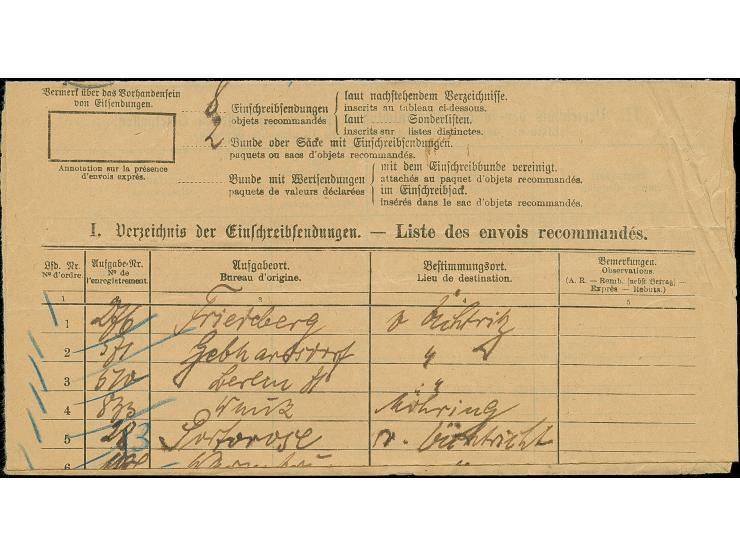 Vermerk über das Vorhandensein
von Eilsendungen.
Annotation sur la présence
d'envois exprès.
8 Einschreibsendungen
objets recommandés
laut nachstehendem Verzeichnisse.
inscrits au tableau ci-dessous.
laut Sonderlisten.
inscrits sur listes distinctes.
2 Bunde oder Säcke mit Einschreibsendungen.
paquets ou sacs d'objets recommandés.
Bunde mit Wertsendungen
paquets de valeurs déclarées
mit dem Einschreibbunde vereinigt.
attachés au paquet d'objets recommandés.
im Einschreibsack.
insérés dans le sac d'objets recommandés.
I. Verzeichnis der Einschreibsendungen. — Liste des envois recommandés.
Lfd. Nr.
Nº d'ordre.
Aufgabe-Nr.
Nº de
l'enregistrement.
Aufgabeort.
Bureau d'origine.
Bestimmungsort.
Lieu de destination.
Bemerkungen.
Observations.
(A. R. — Remb. [nebst Betrag] —
Exprès — Rebuts.)
1 3 5
1 276 Friedeberg
2 Gebhardsdorf
3 670 Berlin
4 833 Möhring
5 283 Portorose
6